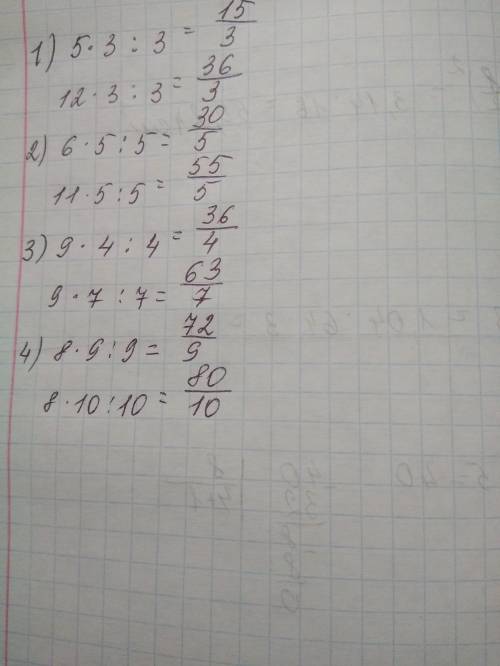 1) 5·3:3 = 15/3
12·3:3 = 36/3
2) 6·5:5 = 30/5
11·5:5 = 55/5
3) 9·4:4 = 36/4
9·7:7 = 63/7
4) 8·9:9 = 72/9
8·10:10 = 80/10